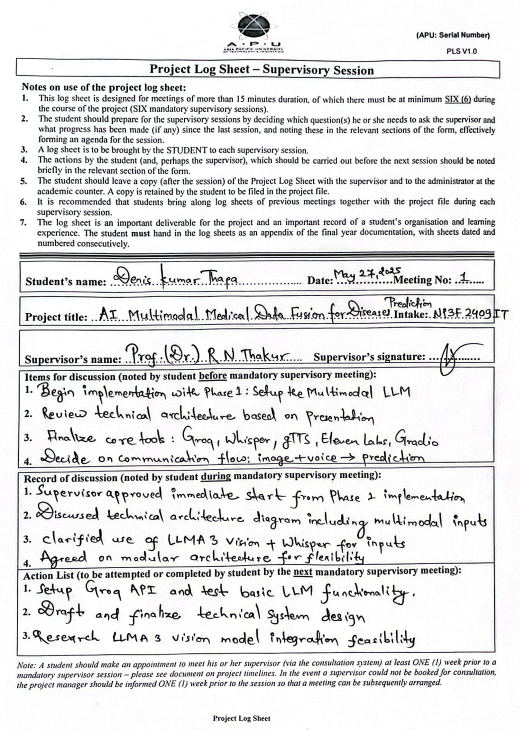 (APU: Serial Number)
A · P · U
ASIA PACIFIC UNIVERSITY
PLS V1.0
Project Log Sheet – Supervisory Session
Notes on use of the project log sheet:
1. This log sheet is designed for meetings of more than 15 minutes duration, of which there must be at minimum SIX (6) during
the course of the project (SIX mandatory supervisory sessions).
2. The student should prepare for the supervisory sessions by deciding which question(s) he or she needs to ask the supervisor and
what progress has been made (if any) since the last session, and noting these in the relevant sections of the form, effectively
forming an agenda for the session.
3. A log sheet is to be brought by the STUDENT to each supervisory session.
4. The actions by the student (and, perhaps the supervisor), which should be carried out before the next session should be noted
briefly in the relevant section of the form.
5. The student should leave a copy (after the session) of the Project Log Sheet with the supervisor and to the administrator at the
academic counter. A copy is retained by the student to be filed in the project file.
6. It is recommended that students bring along log sheets of previous meetings together with the project file during each
supervisory session.
7. The log sheet is an important deliverable for the project and an important record of a student's organisation and learning
experience. The student must hand in the log sheets as an appendix of the final year documentation, with sheets dated and
numbered consecutively.
Student's name: Denis Kumar Thapa Date: May 27, 2025 Meeting No: 1
Project title: AI Multimodal Medical Data Fusion for Disease Prediction Intake: NP3F2409IT
Supervisor's name: Prof. (Dr.) R.N. Thakur Supervisor's signature:
Items for discussion (noted by student before mandatory supervisory meeting):
1. Begin implementation with Phase 1: Setup the Multimodal LLM
2. Review technical architecture based on Presentation
3. Finalize core tools: Groq, Whisper, gTTS, Eleven Labs, Gradio
4. Decide on communication flow: image + voice → prediction
Record of discussion (noted by student during mandatory supervisory meeting):
1. Supervisor approved immediate start from Phase 1 implementation
2. Discussed technical architecture diagram including multimodal inputs
3. clarified use of LLMA 3 Vision + Whisper for inputs
4. Agreed on modular architecture for flexibility
Action List (to be attempted or completed by student by the next mandatory supervisory meeting):
1. Setup Groq API and test basic LLM functionality.
2. Draft and finalize technical system design
3. Research LLMA 3 vision model integration feasibility
Note: A student should make an appointment to meet his or her supervisor (via the consultation system) at least ONE (1) week prior to a
mandatory supervisor session – please see document on project timelines. In the event a supervisor could not be booked for consultation,
the project manager should be informed ONE (1) week prior to the session so that a meeting can be subsequently arranged.
Project Log Sheet